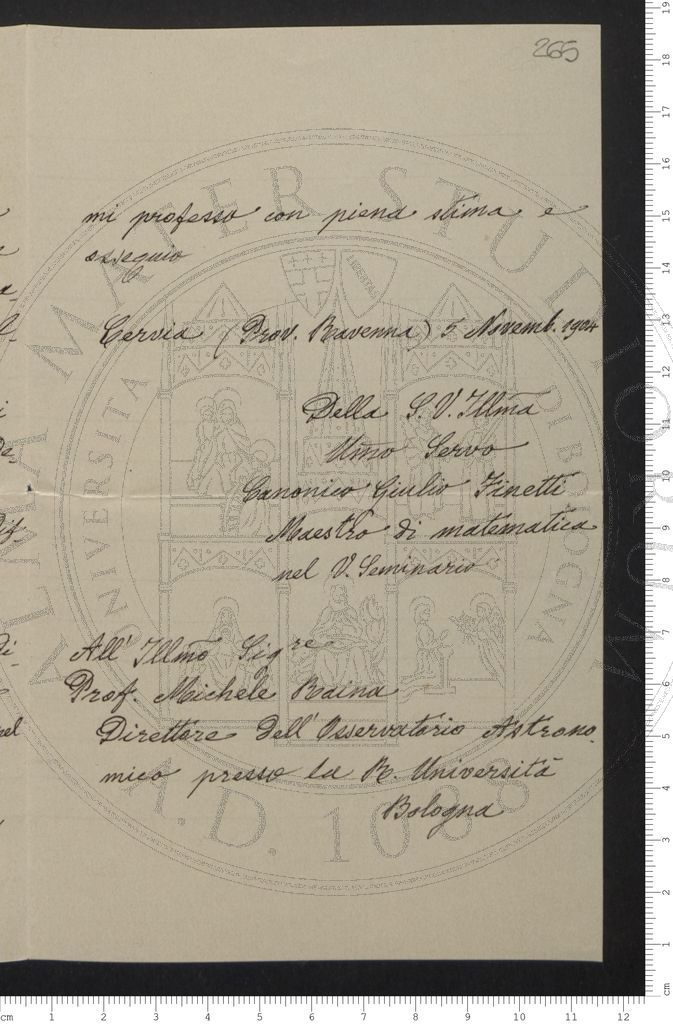 265
mi professo con piena stima e
ossequio
Cervia (Prov. Ravenna) 5 Novemb. 1904
Della S. V. Illma
Umo Servo
Canonico Giulio Finetti
Maestro di matematica
nel V. Seminario
All' Illmo Sigre
Prof. Michele Raina
Direttore dell' Osservatorio Astrono-
mico presso la R. Università
Bologna
ALMA MATER STUDIORUM
A.D. 1088
UNIVERSITÀ DI BOLOGNA
LIBERTAS